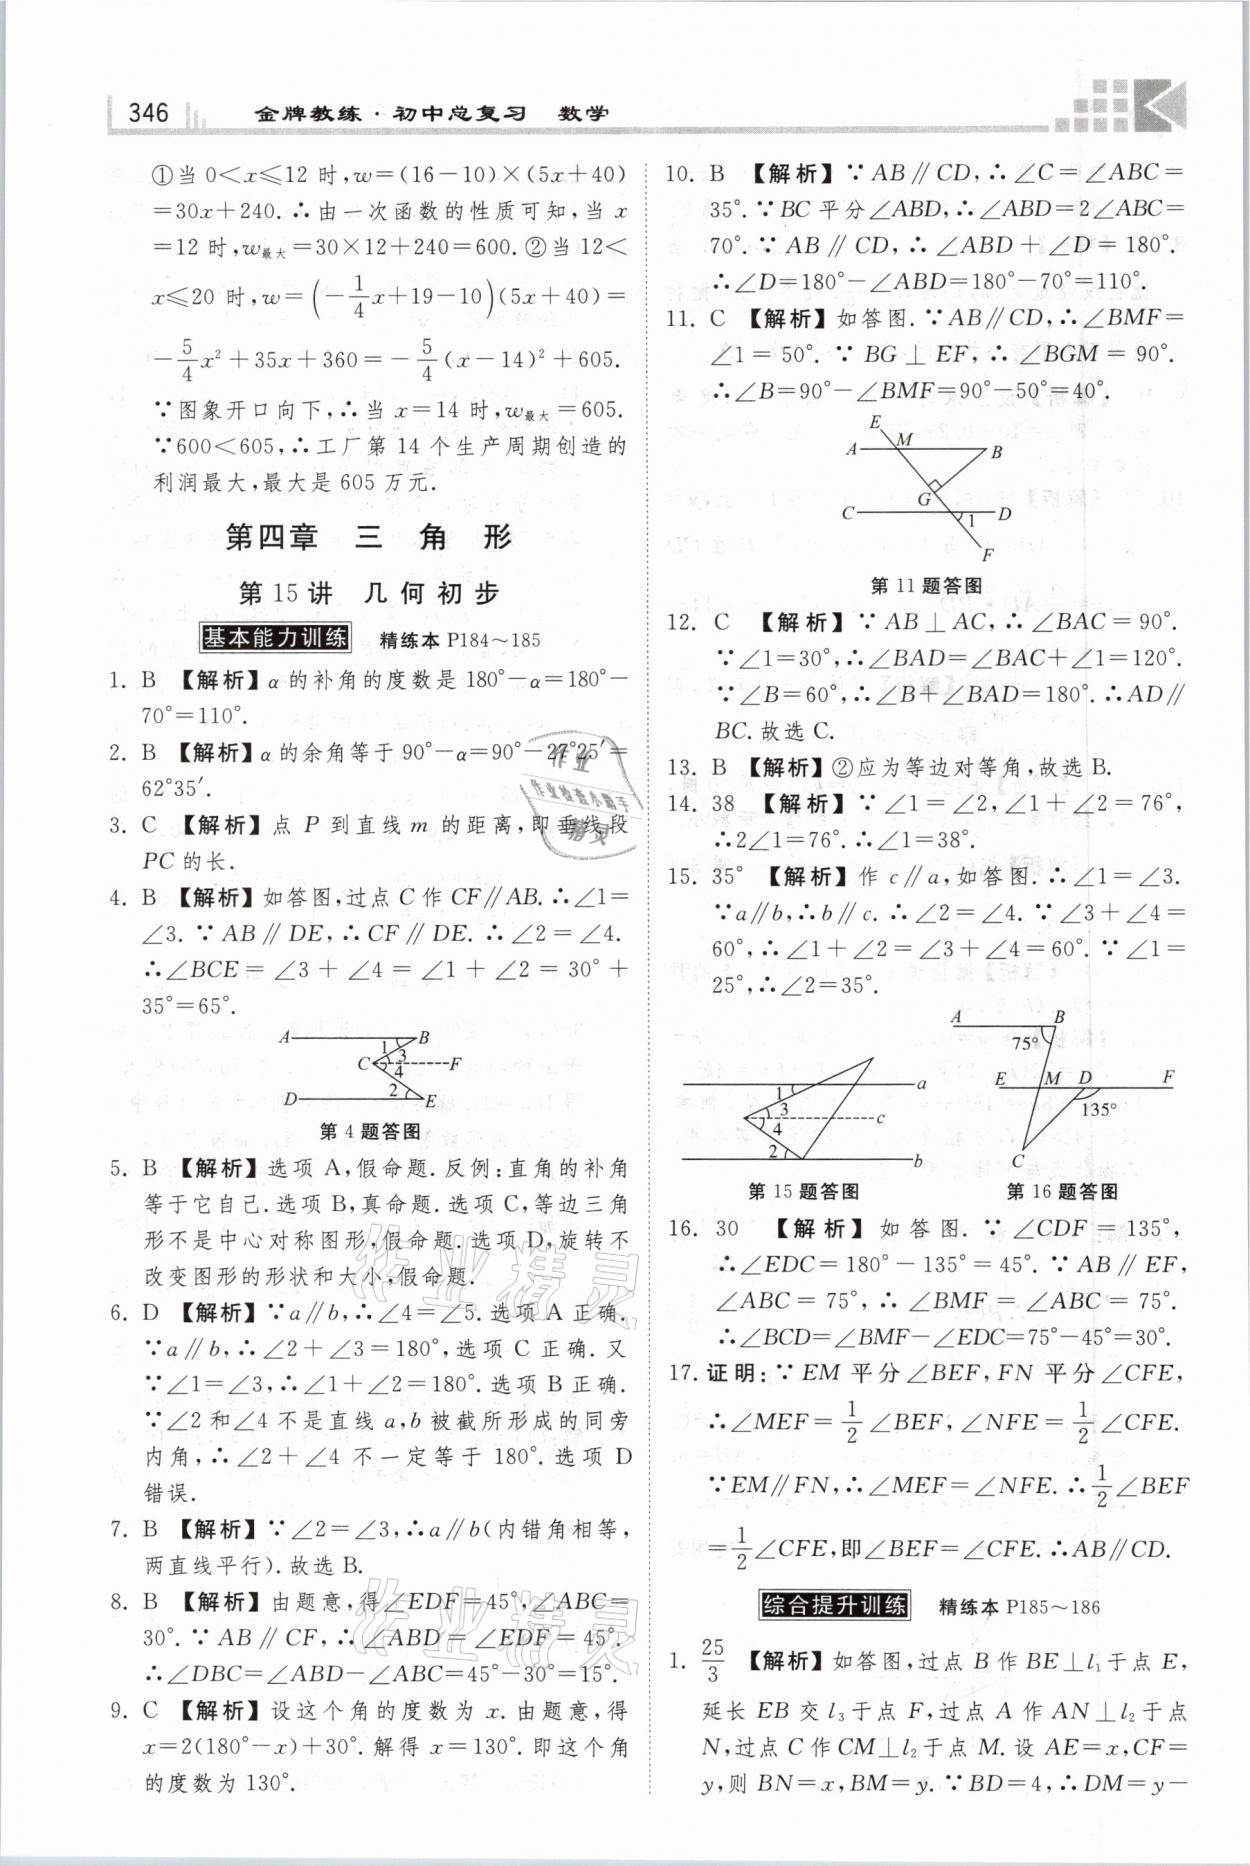 346 金牌教练·初中总复习 数学
①当0<x≤12时,w=(16-10)×(5x+40)
=30x+240.∴由一次函数的性质可知,当x
=12时,w最大=30×12+240=600.②当12<
x≤20时,w=(-1/4x+19-10)(5x+40)=
-5/4x²+35x+360=-5/4(x-14)²+605.
∵图象开口向下,∴当x=14时,w最大=605.
∵600<605,∴工厂第14个生产周期创造的
利润最大,最大是605万元.
第四章 三角形
第15讲 几何初步
基本能力训练 精练本P184~185
1. B 【解析】α的补角的度数是180°-α=180°-
70°=110°.
2. B 【解析】α的余角等于90°-α=90°-27°25′=
62°35′.
3. C 【解析】点P到直线m的距离,即垂线段
PC的长.
4. B 【解析】如答图,过点C作CF∥AB.∴∠1=
∠3.∵AB∥DE,∴CF∥DE.∴∠2=∠4.
∴∠BCE=∠3+∠4=∠1+∠2=30°+
35°=65°.
A B
1 3
C F
4
2
D E
第4题答图
5. B 【解析】选项A,假命题.反例:直角的补角
等于它自己.选项B,真命题.选项C,等边三角
形不是中心对称图形,假命题.选项D,旋转不
改变图形的形状和大小,假命题.
6. D 【解析】∵a∥b,∴∠4=∠5.选项A正确.
∵a∥b,∴∠2+∠3=180°,选项C正确.又
∵∠1=∠3,∴∠1+∠2=180°.选项B正确.
∵∠2和∠4不是直线a,b被截所形成的同旁
内角,∴∠2+∠4不一定等于180°.选项D
错误.
7. B 【解析】∵∠2=∠3,∴a∥b(内错角相等,
两直线平行).故选B.
8. B 【解析】由题意,得∠EDF=45°,∠ABC=
30°.∵AB∥CF,∴∠ABD=∠EDF=45°.
∴∠DBC=∠ABD-∠ABC=45°-30°=15°.
9. C 【解析】设这个角的度数为x.由题意,得
x=2(180°-x)+30°.解得x=130°.即这个角
的度数为130°.
10. B 【解析】∵AB∥CD,∴∠C=∠ABC=
35°.∵BC平分∠ABD,∴∠ABD=2∠ABC=
70°.∵AB∥CD,∴∠ABD+∠D=180°.
∴∠D=180°-∠ABD=180°-70°=110°.
11. C 【解析】如答图.∵AB∥CD,∴∠BMF=
∠1=50°.∵BG⊥EF,∴∠BGM=90°.
∴∠B=90°-∠BMF=90°-50°=40°.
E
M
A B
G
C 1 D
F
第11题答图
12. C 【解析】∵AB⊥AC,∴∠BAC=90°.
∵∠1=30°,∴∠BAD=∠BAC+∠1=120°.
∵∠B=60°,∴∠B+∠BAD=180°.∴AD∥
BC.故选C.
13. B 【解析】②应为等边对等角,故选B.
14. 38 【解析】∵∠1=∠2,∠1+∠2=76°,
∴2∠1=76°.∴∠1=38°.
15. 35° 【解析】作c∥a,如答图.∴∠1=∠3.
∵a∥b,∴b∥c.∴∠2=∠4.∵∠3+∠4=
60°,∴∠1+∠2=∠3+∠4=60°.∵∠1=
25°,∴∠2=35°.
1 a
3
4 c
2 b
第15题答图
A B
75°
E M D F
135°
C
第16题答图
16. 30 【解析】如答图.∵∠CDF=135°,
∴∠EDC=180°-135°=45°.∵AB∥EF,
∠ABC=75°,∴∠BMF=∠ABC=75°.
∴∠BCD=∠BMF-∠EDC=75°-45°=30°.
17. 证明:∵EM平分∠BEF,FN平分∠CFE,
∴∠MEF=1/2∠BEF,∠NFE=1/2∠CFE.
∵EM∥FN,∴∠MEF=∠NFE.∴1/2∠BEF
=1/2∠CFE,即∠BEF=∠CFE.∴AB∥CD.
综合提升训练 精练本P185~186
1. 25/3 【解析】如答图,过点B作BE⊥l₁于点E,
延长EB交l₃于点F,过点A作AN⊥l₂于点
N,过点C作CM⊥l₂于点M.设AE=x,CF=
y,则BN=x,BM=y.∵BD=4,∴DM=y-
作业
作业检查小助手
精灵
作业精灵
作业精灵